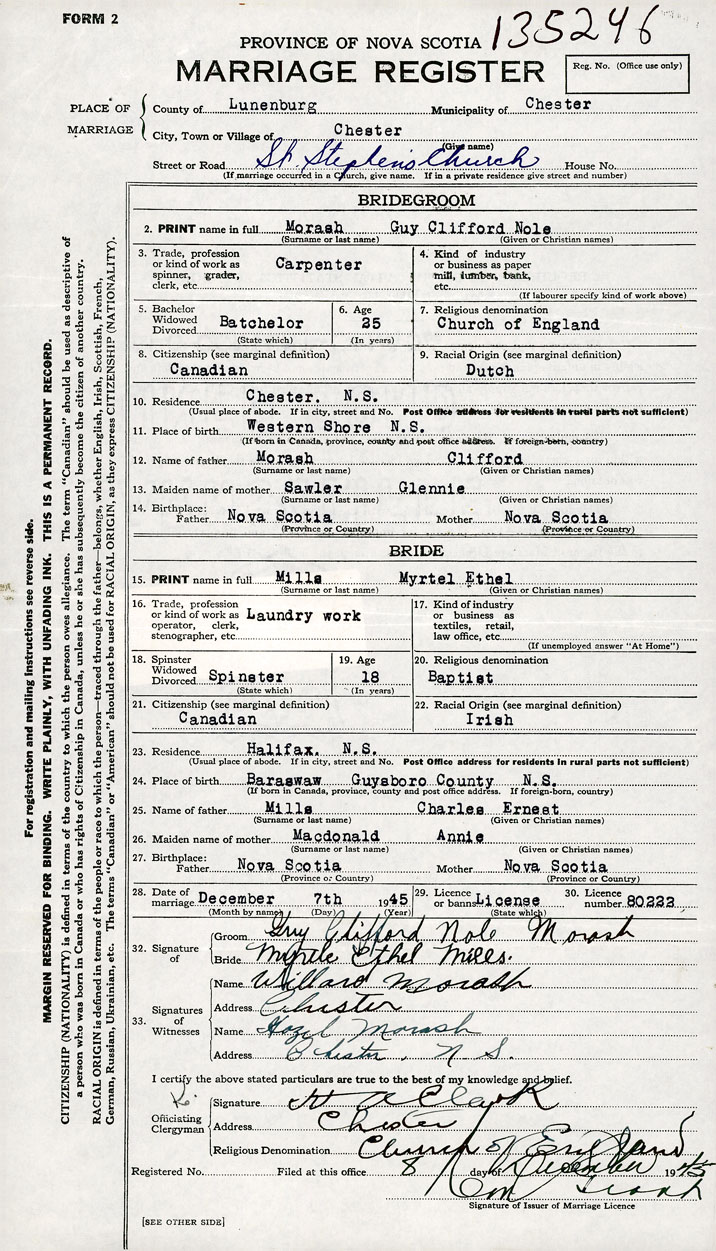 FORM 2
135246
PROVINCE OF NOVA SCOTIA
MARRIAGE REGISTER
Reg. No. (Office use only)
PLACE OF MARRIAGE
County of Lunenburg Municipality of Chester
City, Town or Village of Chester
(Give name)
Street or Road St. Stephen's Church House No.
(If marriage occurred in a Church, give name. If in a private residence give street and number)
BRIDEGROOM
2. PRINT name in full Morash Guy Clifford Nole
(Surname or last name) (Given or Christian names)
3. Trade, profession or kind of work as spinner, grader, clerk, etc. Carpenter
4. Kind of industry or business as paper mill, lumber, bank, etc.
(If labourer specify kind of work above)
5. Bachelor Widowed Divorced Batchelor
(State which)
6. Age 25
(In years)
7. Religious denomination
Church of England
8. Citizenship (see marginal definition)
Canadian
9. Racial Origin (see marginal definition)
Dutch
10. Residence Chester. N.S.
(Usual place of abode. If in city, street and No. Post Office address for residents in rural parts not sufficient)
11. Place of birth Western Shore N.S.
(If born in Canada, province, county and post office address. If foreign-born, country)
12. Name of father Morash Clifford
(Surname or last name) (Given or Christian names)
13. Maiden name of mother Sawler Glennie
(Surname or last name) (Given or Christian names)
14. Birthplace: Father Nova Scotia Mother Nova Scotia
(Province or Country) (Province or Country)
BRIDE
15. PRINT name in full Mills Myrtel Ethel
(Surname or last name) (Given or Christian names)
16. Trade, profession or kind of work as operator, clerk, stenographer, etc. Laundry work
17. Kind of industry or business as textiles, retail, law office, etc.
(If unemployed answer "At Home")
18. Spinster Widowed Divorced Spinster
(State which)
19. Age 18
(In years)
20. Religious denomination
Baptist
21. Citizenship (see marginal definition)
Canadian
22. Racial Origin (see marginal definition)
Irish
23. Residence Halifax. N.S.
(Usual place of abode. If in city, street and No. Post Office address for residents in rural parts not sufficient)
24. Place of birth Baraswaw Guysboro County N.S.
(If born in Canada, province, county and post office address. If foreign-born, country)
25. Name of father Mills Charles Ernest
(Surname or last name) (Given or Christian names)
26. Maiden name of mother Macdonald Annie
(Surname or last name) (Given or Christian names)
27. Birthplace: Father Nova Scotia Mother Nova Scotia
(Province or Country) (Province or Country)
28. Date of marriage December 7th 1945
(Month by name) (Day) (Year)
29. Licence or banns License
(State which)
30. Licence number 80222
32. Signature of
Groom Guy Clifford Nole Morash
Bride Myrtle Ethel Mills.
33. Signatures of Witnesses
Name Willard Morash
Address Chester
Name Hazel Morash
Address Chester, N.S.
I certify the above stated particulars are true to the best of my knowledge and belief.
Officiating Clergyman
Signature H A Clark
Address Chester
Religious Denomination Church of England
Registered No. Filed at this office 8 day of December 1945
Signature of Issuer of Marriage Licence
[SEE OTHER SIDE]
For registration and mailing instructions see reverse side.
MARGIN RESERVED FOR BINDING. WRITE PLAINLY, WITH UNFADING INK. THIS IS A PERMANENT RECORD.
CITIZENSHIP (NATIONALITY) is defined in terms of the country to which the person owes allegiance. The term "Canadian" should be used as descriptive of
a person who was born in Canada or who has rights of Citizenship in Canada, unless he or she has subsequently become the citizen of another country.
RACIAL ORIGIN is defined in terms of the people or race to which the person—traced through the father—belongs, whether English, Irish, Scottish, French,
German, Russian, Ukrainian, etc. The terms "Canadian" or "American" should not be used for RACIAL ORIGIN, as they express CITIZENSHIP (NATIONALITY).